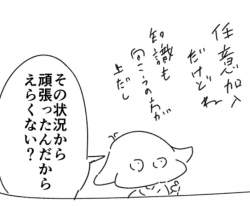 任意加入
だけどね
知識も
向こうの方が
上だし
その状況から
頑張ったんだから
えらくない?